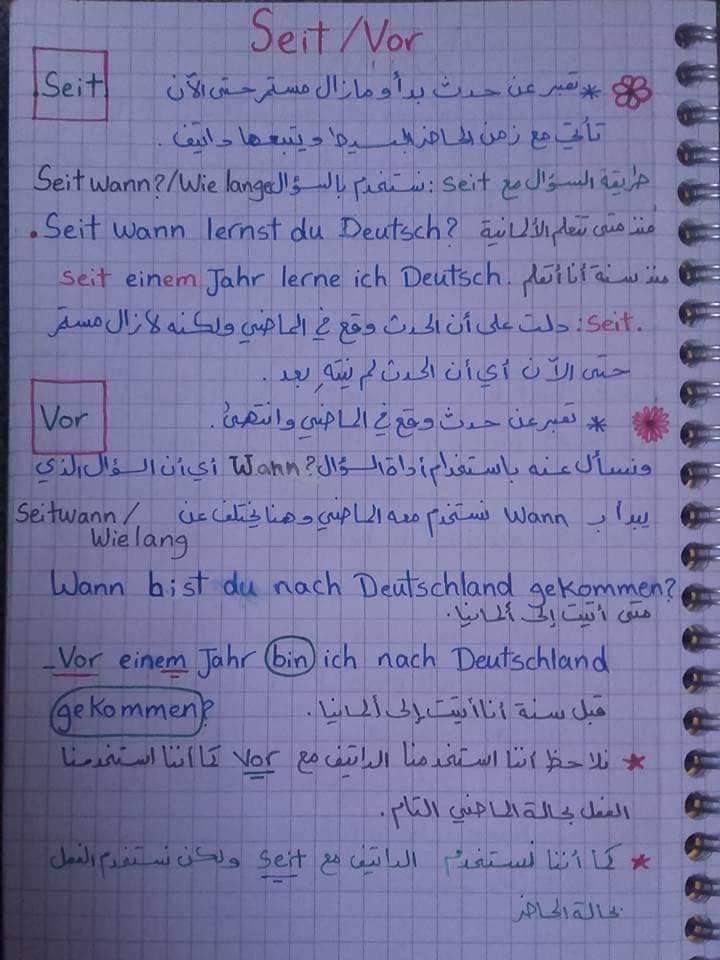 Seit/Vor
Seit * تعبر عن حدث بدأ و مازال مستمر حتى الآن
تأتي مع زمن الحاضر البسيط و يتبعها داتيف.
طريقة السؤال مع seit: نستخدم بالسؤال Seit wann?/Wie lange
.Seit wann lernst du Deutsch? منذ متى تتعلم الألمانية
seit einem Jahr lerne ich Deutsch. منذ سنة أنا أتعلم
.Seit: دلت على أن الحدث وقع في الماضي ولكنه لازال مستمر
حتى الآن أي أن الحدث لم ينتهِ بعد.
Vor * تعبر عن حدث وقع في الماضي وانتهى.
ونسأل عنه باستخدام أداة السؤال Wann? أي أن السؤال الذي
يبدأ ب Wann نستخدم معه الماضي وهنا يختلف عن Seitwann/
Wielang
Wann bist du nach Deutschland gekommen?
متى أتيت إلى ألمانيا.
-Vor einem Jahr bin ich nach Deutschland
gekommen? قبل سنة أنا أتيت إلى ألمانيا.
* نلاحظ أننا استخدمنا الداتيف مع Vor كما أننا استخدمنا
الفعل بحالة الماضي التام.
* كما أننا نستخدم الداتيف مع seit ولكن نستخدم الفعل
بحالة الحاضر